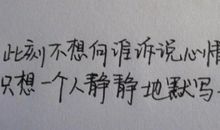 此刻不想向谁诉说心情
只想一个人静静地默写